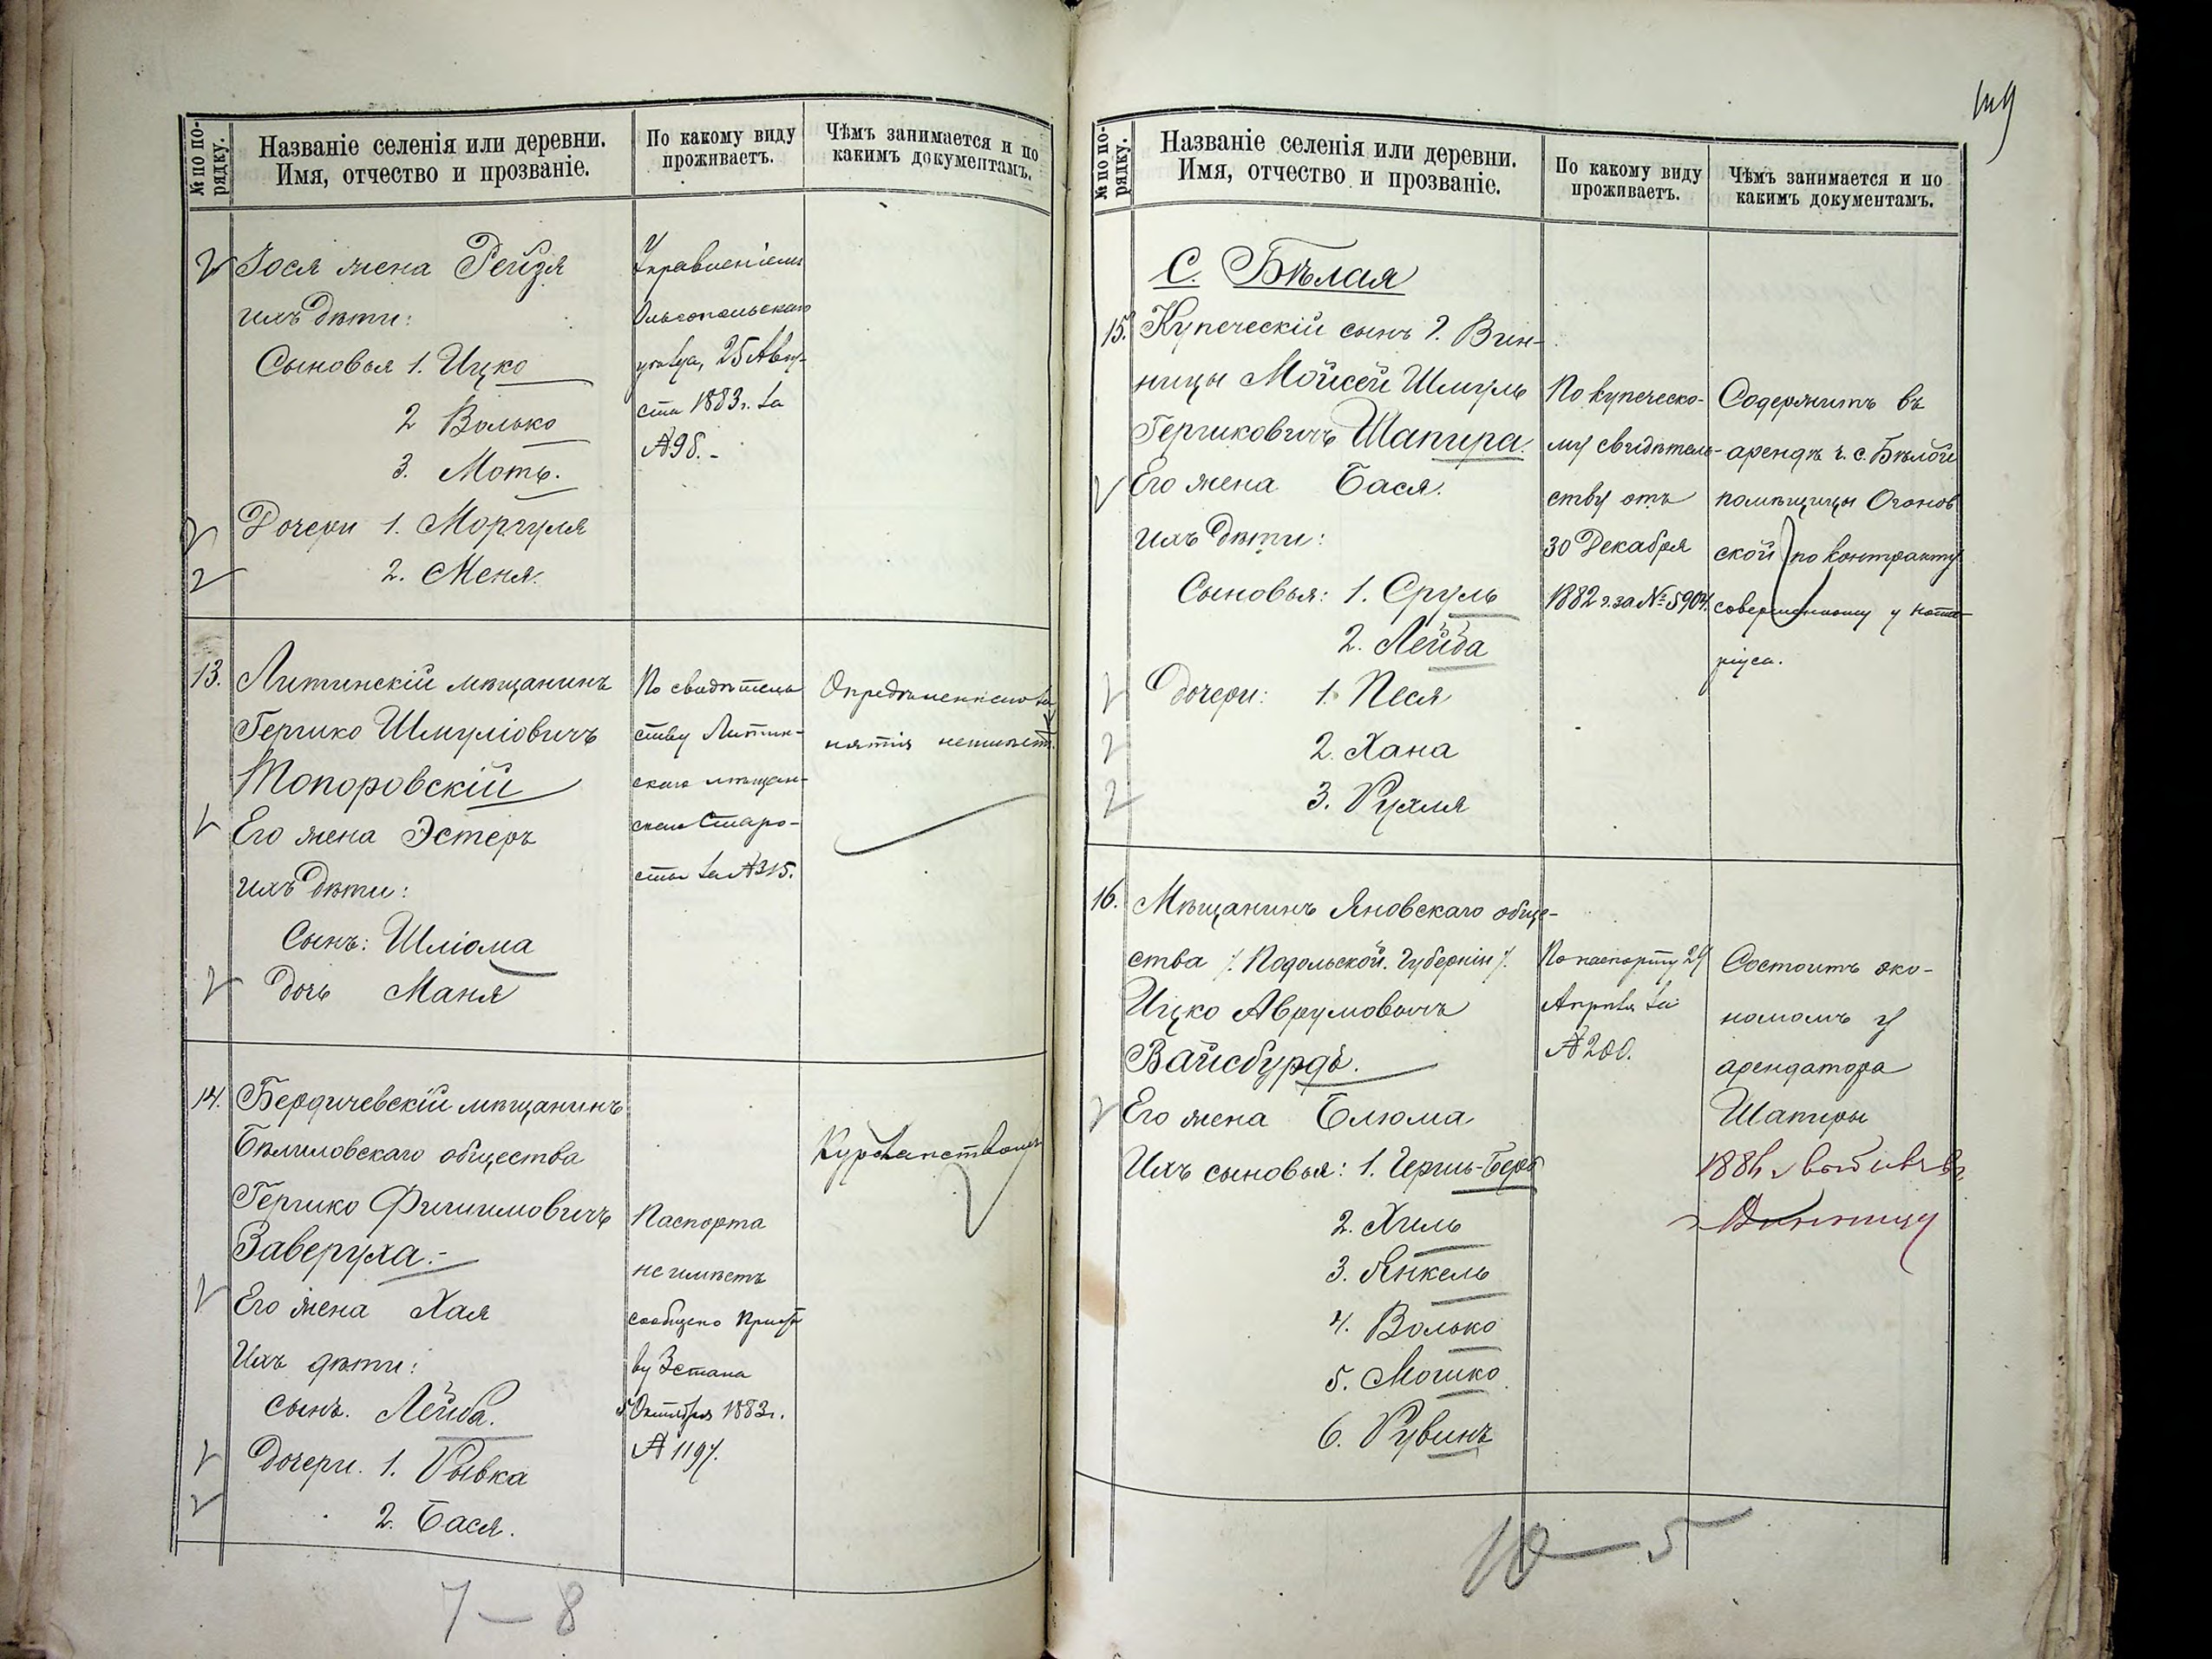 № по по-
рядку.
Названіе селенія или деревни.
Имя, отчество и прозваніе.
По какому виду
проживаетъ.
Чѣмъ занимается и по
какимъ документамъ.
Іося жена Рейзя
ихъ дѣти:
Сыновья 1. Ицко
2 Волько
3. Моть.
Дочери 1. Моргуля
2. Меня.
Управленіемъ
Ольгопольскаго
уѣзда, 25 Авгу-
ста 1883 г. за
№ 98.-
13. Литинскій мѣщанинъ
Гершко Шмуліовичъ
Топоровскій
Его жена Эстеръ
ихъ дѣти:
Сынъ: Шліома
дочь Маня
По свидѣтель
ству Литин-
скаго мѣщан-
скаго Старо-
сты за № 315.
Опредѣленнаго за
нятія неимѣетъ.
14. Бердичевскій мѣщанинъ
Бѣлиловскаго общества
Гершко Фишимовичъ
Заверуха.-
Его жена Хая
Ихъ дѣти:
сынъ. Лейба.
дочери. 1. Рывка
2. Бася.
Паспорта
не имѣетъ
сообщено Приста
ву 3 стана
5 Октября 1883 г.
№ 1197.
7 — 8
149
№ по по-
рядку.
Названіе селенія или деревни.
Имя, отчество и прозваніе.
По какому виду
проживаетъ.
Чѣмъ занимается и по
какимъ документамъ.
С. Бѣлая
15. Купеческій сынъ г. Вин-
ницы Мойсей Шмуль
Гершковичъ Шапира.
Его жена Бася.
ихъ дѣти:
Сыновья: 1. Сруль
2. Лейба
дочери: 1. Песя
2. Хана
3. Рухля
По купеческо-
му свидѣтель-
ству отъ
30 Декабря
1882 г. за № 5904.
Содержитъ въ
арендѣ ч. с. Бѣлой
помѣщицы Огонов
ской по контракту
совершенному у нота-
ріуса.
16. Мѣщанинъ Яновскаго обще-
ства /. Подольской. Губерніи /.
Ицко Аврумовичъ
Вайсбурдъ.
Его жена Блюма
Ихъ сыновья: 1. Гершъ-Беръ
2. Хиль
3. Янкель
4. Волько
5. Мошко
6. Рувинъ
По паспорту 29
Апрѣля за
№ 200.
Состоитъ эко-
номомъ у
арендатора
Шапиры
Винницу
10 — 5